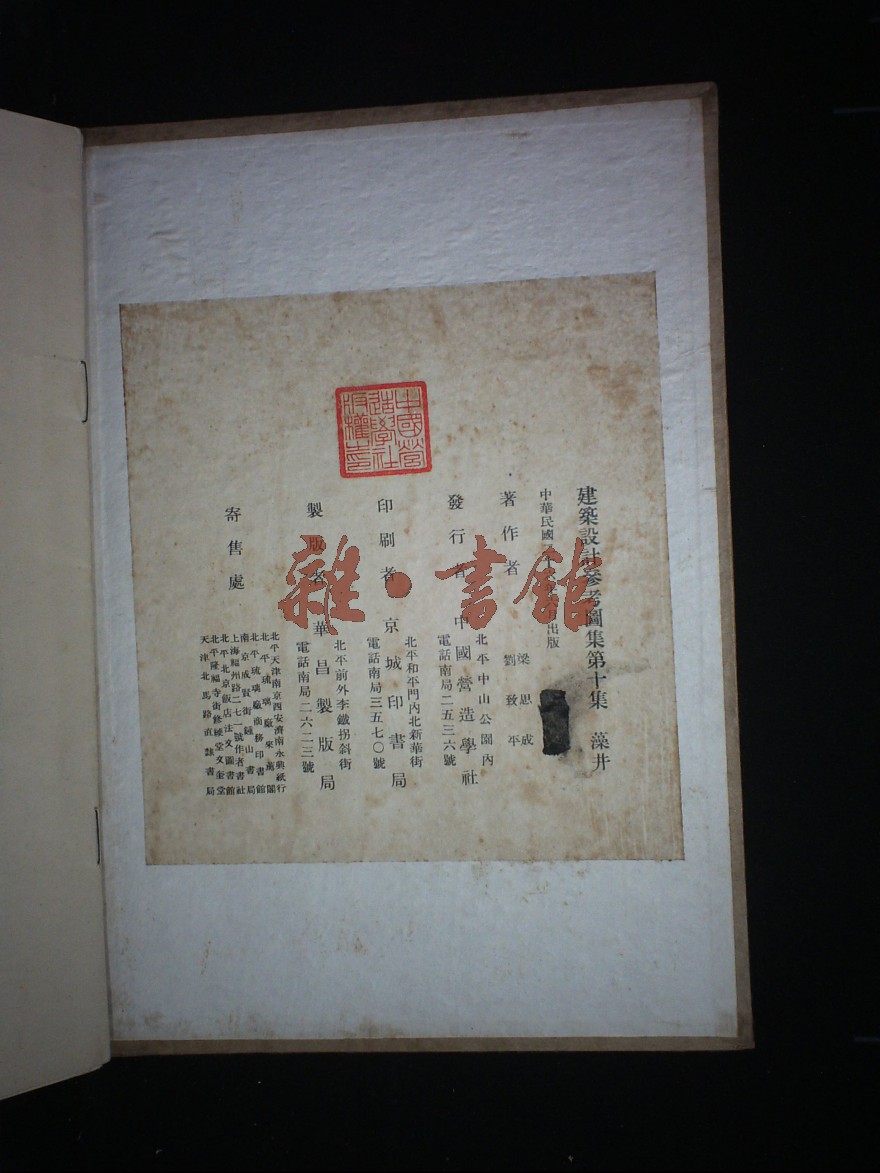 建築設計參考圖集第十集 藻井
中華民國
出版
著作者
梁思成
劉致平
發行者 中國營造學社
北平中山公園內
電話南局二五三六號
印刷者 京城印書局
北平和平門內北新華街
電話南局三五七〇號
製版者 華昌製版局
北平前外李鐵拐斜街
電話南局二六二三號
寄售處
北平天津南京西安濟南永興紙行
北平琉璃廠來薰閣
北平琉璃廠商務印書館
南京成賢街鍾山書局
上海福州路二七一號作者書社
北平北京飯店法文圖書館
北平隆福寺街修綆堂文奎堂
天津北馬路直隸書局
中國營造學社版權印
雜·書館